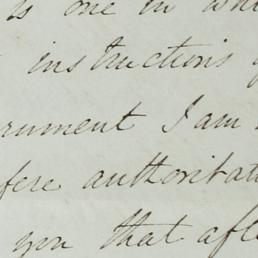 is one in whi
instructions
rument I am
fere authoritat
you that afte